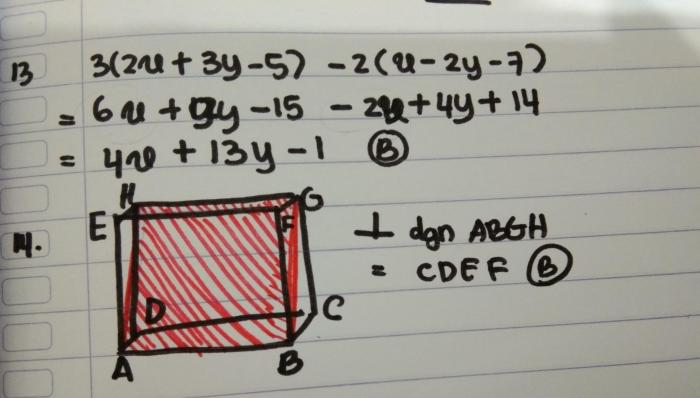 13 3(2x + 3y - 5) - 2(x - 2y - 7)
= 6x + 9y - 15 - 2x + 4y + 14
= 4x + 13y - 1 B
14.
H G
E F
⊥ dgn ABGH
= CDEF B
D C
A B